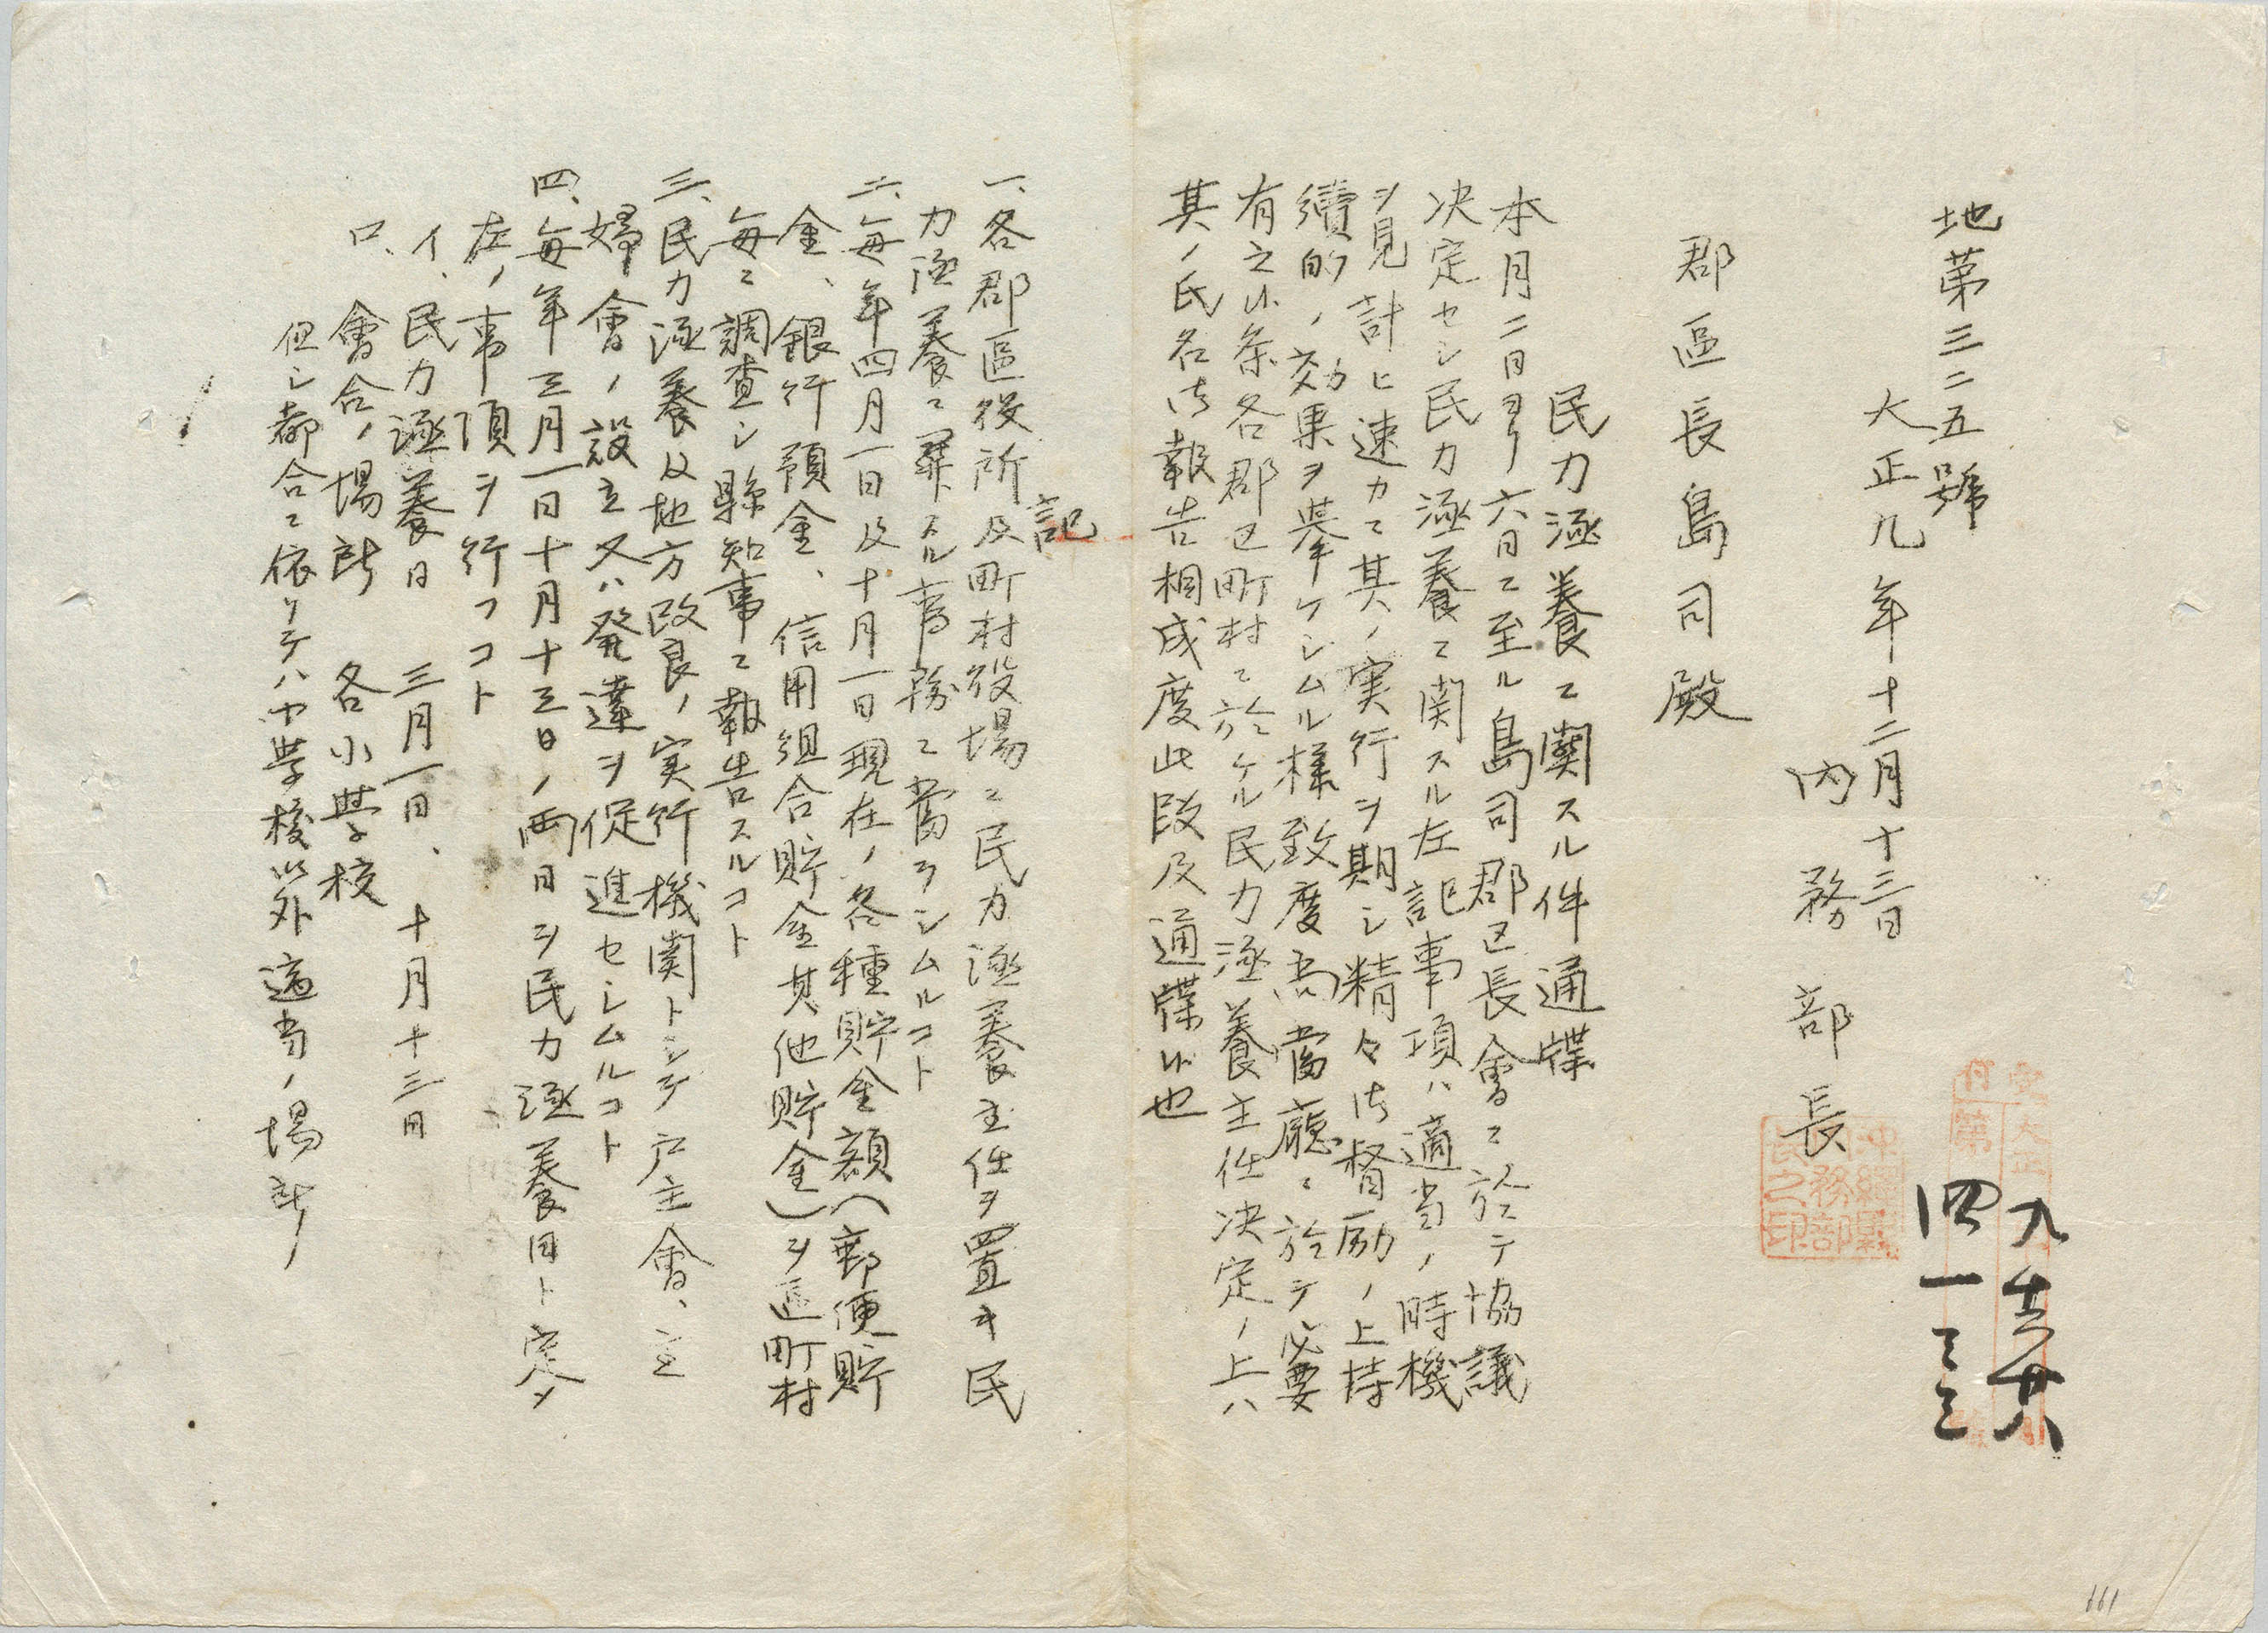 地第三二五號
大正九年十二月十三日
内務部長
沖縄縣内務部長之印
郡區長島司殿
民力涵養ニ関スル件通牒
本月二日ヨリ六日ニ至ル島司郡区長會ニ於テ協議
決定セシ民力涵養ニ関スル左記事項ハ適当ノ時機
ヲ見計ヒ速カニ其ノ実行ヲ期シ精々御督励ノ上持
續的ノ効果ヲ挙ケシムル様致度尚當廳ニ於テ必要
有之候条各郡区町村ニ於ケル民力涵養主任決定ノ上ハ
其ノ氏名御報告相成度此段及通牒候也
記
一、各郡區役所及町村役場ニ民力涵養主任ヲ置キ民
力涵養ニ関スル事務ニ當ラシムルコト
二、毎年四月一日及十月一日現在ノ各種貯金額（郵便貯
金、銀行預金、信用組合貯金其他貯金）ヲ區町村
毎ニ調査シ縣知事ニ報告スルコト
三、民力涵養及地方改良ノ実行機関トシテ戸主會、主
婦會ノ設立又ハ発達ヲ促進セシムルコト
四、毎年三月一日十月十三日ノ両日ヲ民力涵養日ト定メ
左ノ事項ヲ行フコト
イ、民力涵養日 三月一日、十月十三日
ロ、會合ノ場所 各小学校
但シ都合ニ依リテハ小学校以外適当ノ場所
661